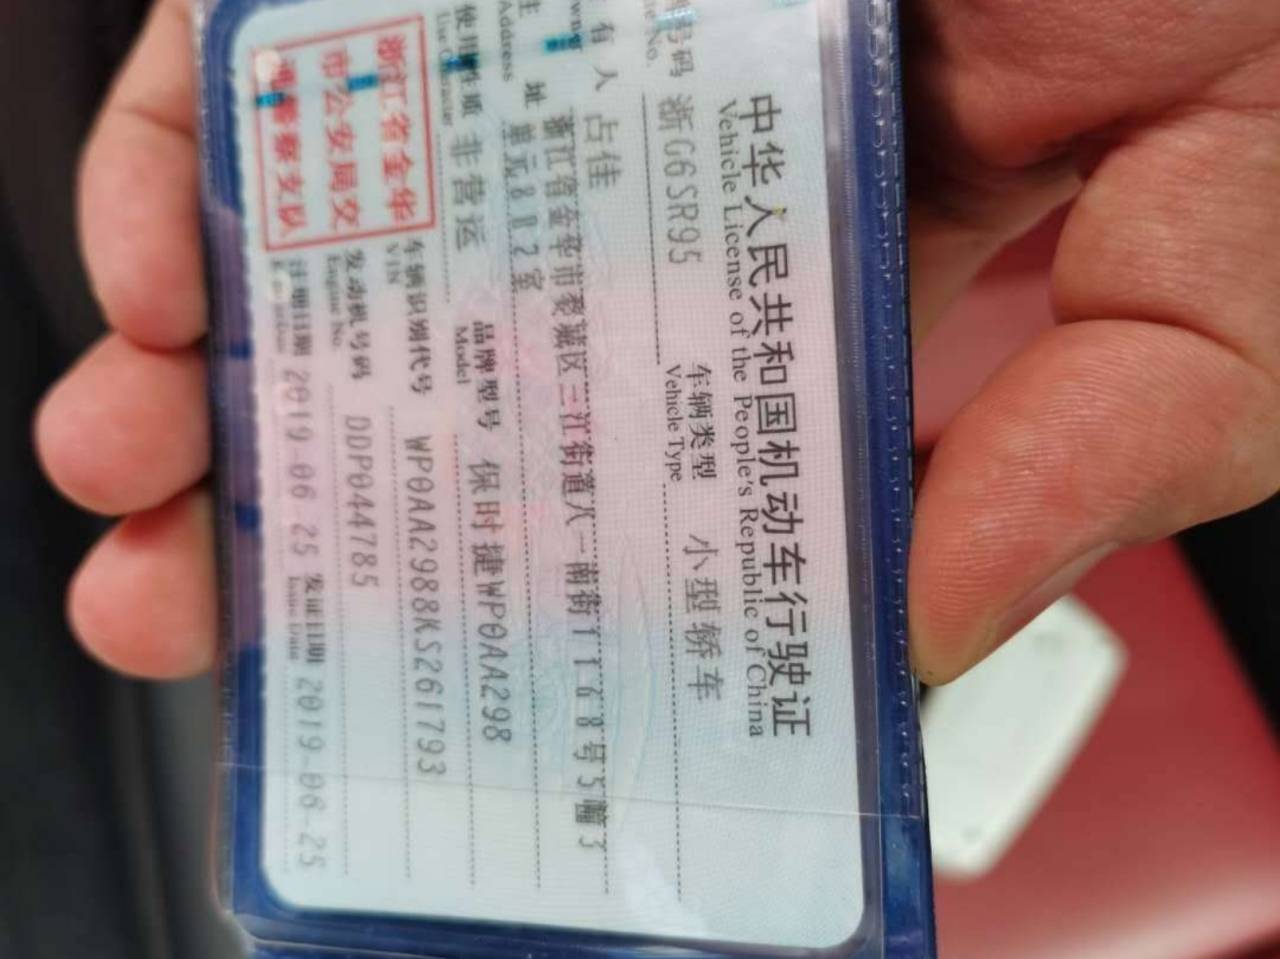 中华人民共和国机动车行驶证
Vehicle License of the People's Republic of China
号码 浙G6SR95 车辆类型 小型轿车
No. Vehicle Type
有人 占佳
址 浙江省金华市婺城区三江街道八一南街1168号5幢3
Address 单元602室
使用性质 非营运 品牌型号 保时捷WP0AA298
Model
浙江省金华
市公安局交
通警察支队
车辆识别代号 WP0AA2988KS261793
VIN
发动机号码 DDP044785
Engine No.
注册日期 2019-06-25 发证日期 2019-06-25
Issue Date